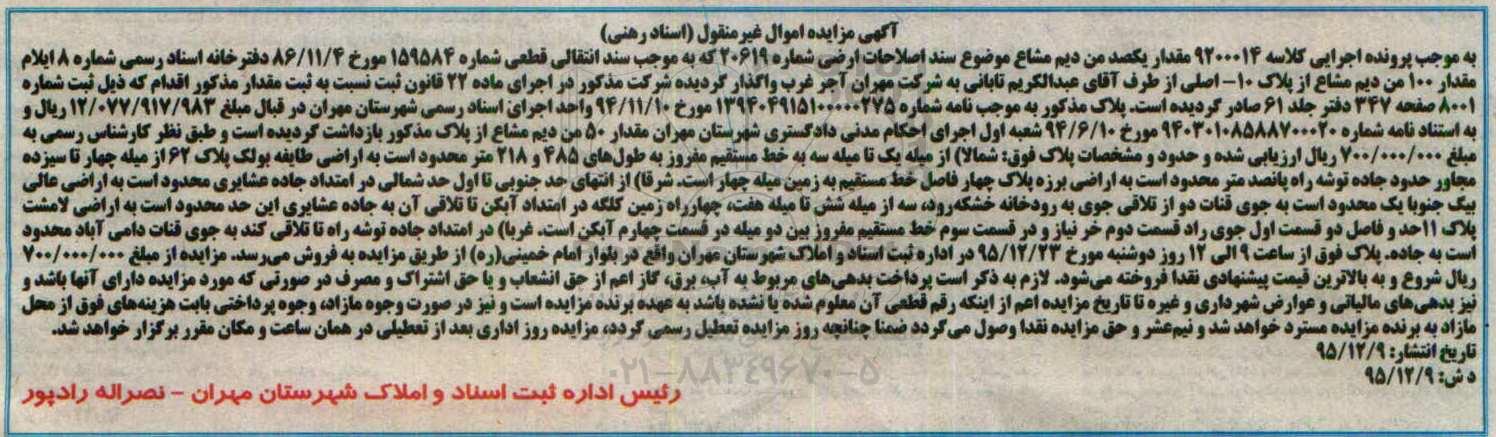 آگهی مزایده اموال غیرمنقول (اسناد رهنی)
به موجب پرونده اجرایی کلاسه ۹۲۰۰۰۱۴ مقدار یکصد من دیم مشاع موضوع سند اصلاحات ارضی شماره ۲۰۶۱۹ که به موجب سند انتقالی قطعی شماره ۱۵۹۵۸۴ مورخ ۸۶/۱۱/۴ دفترخانه اسناد رسمی شماره ۸ ایلام
مقدار ۱۰۰ من دیم مشاع از پلاک ۱۰- اصلی از طرف آقای عبدالکریم تابانی به شرکت مهران آجر غرب واگذار گردیده شرکت مذکور در اجرای ماده ۲۲ قانون ثبت نسبت به ثبت مقدار مذکور اقدام که ذیل ثبت شماره
۸۰۰۱ صفحه ۳۴۷ دفتر جلد ۶۱ صادر گردیده است. پلاک مذکور به موجب نامه شماره ۱۳۹۴۰۴۹۱۵۱۰۰۰۰۰۲۷۵ مورخ ۹۴/۱۱/۱۰ واحد اجرای اسناد رسمی شهرستان مهران در قبال مبلغ ۱۲/۰۷۷/۹۱۷/۹۸۳ ریال و
به استناد نامه شماره ۹۴۰۳۰۱۰۸۵۸۸۷۰۰۰۲۰ مورخ ۹۴/۶/۱۰ شعبه اول اجرای احکام مدنی دادگستری شهرستان مهران مقدار ۵۰ من دیم مشاع از پلاک مذکور بازداشت گردیده است و طبق نظر کارشناس رسمی به
مبلغ ۷۰۰/۰۰۰/۰۰۰ ریال ارزیابی شده و حدود و مشخصات پلاک فوق: شمالا) از میله یک تا میله سه به خط مستقیم مفروز به طول‌های ۴۸۵ و ۲۱۸ متر محدود است به اراضی طایفه بولک پلاک ۶۲ از میله چهار تا سیزده
مجاور حدود جاده توشه راه پانصد متر محدود است به اراضی برزه پلاک چهار فاصل خط مستقیم به زمین میله چهار است. شرقا) از انتهای حد جنوبی تا اول حد شمالی در امتداد جاده عشایری محدود است به اراضی عالی
بیگ جنوبا یک محدود است به جوی قنات دو از تلاقی جوی به رودخانه خشکه‌رود، سه از میله شش تا میله هفت، چهارراه زمین کلگه در امتداد آبکن تا تلاقی آن به جاده عشایری این حد محدود است به اراضی لامشت
پلاک ۱۱حد و فاصل دو قسمت اول جوی راد قسمت دوم خر نیاز و در قسمت سوم خط مستقیم مفروز بین دو میله در قسمت چهارم آبکن است. غربا) در امتداد جاده توشه راه تا تلاقی کند به جوی قنات دامی آباد محدود
است به جاده. پلاک فوق از ساعت ۹ الی ۱۲ روز دوشنبه مورخ ۹۵/۱۲/۲۳ در اداره ثبت اسناد و املاک شهرستان مهران واقع در بلوار امام خمینی(ره) از طریق مزایده به فروش می‌رسد. مزایده از مبلغ ۷۰۰/۰۰۰/۰۰۰
ریال شروع و به بالاترین قیمت پیشنهادی نقدا فروخته می‌شود. لازم به ذکر است پرداخت بدهی‌های مربوط به آب، برق، گاز اعم از حق انشعاب و یا حق اشتراک و مصرف در صورتی که مورد مزایده دارای آنها باشد و
نیز بدهی‌های مالیاتی و عوارض شهرداری و غیره تا تاریخ مزایده اعم از اینکه رقم قطعی آن معلوم شده یا نشده باشد به عهده برنده مزایده است و نیز در صورت وجوه مازاد، وجوه پرداختی بابت هزینه‌های فوق از محل
مازاد به برنده مزایده مسترد خواهد شد و نیم‌عشر و حق مزایده نقدا وصول می‌گردد ضمنا چنانچه روز مزایده تعطیل رسمی گردد، مزایده روز اداری بعد از تعطیلی در همان ساعت و مکان مقرر برگزار خواهد شد.
تاریخ انتشار: ۹۵/۱۲/۹
د ش: ۹۵/۱۲/۹
۰۲۱-۸۸۳۴۹۶۷۰-۵
رئیس اداره ثبت اسناد و املاک شهرستان مهران - نصراله رادپور